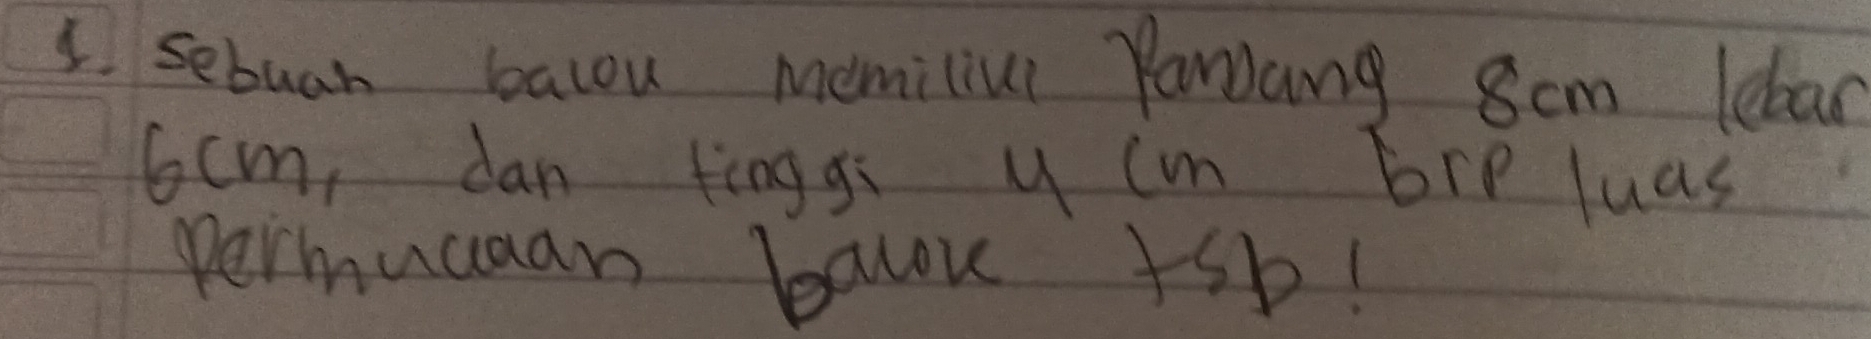 1. Sebuah balok memiliki Panjang 8cm lebar
6cm, dan tinggi 4 cm brp luas
Permukaan balok tsb!